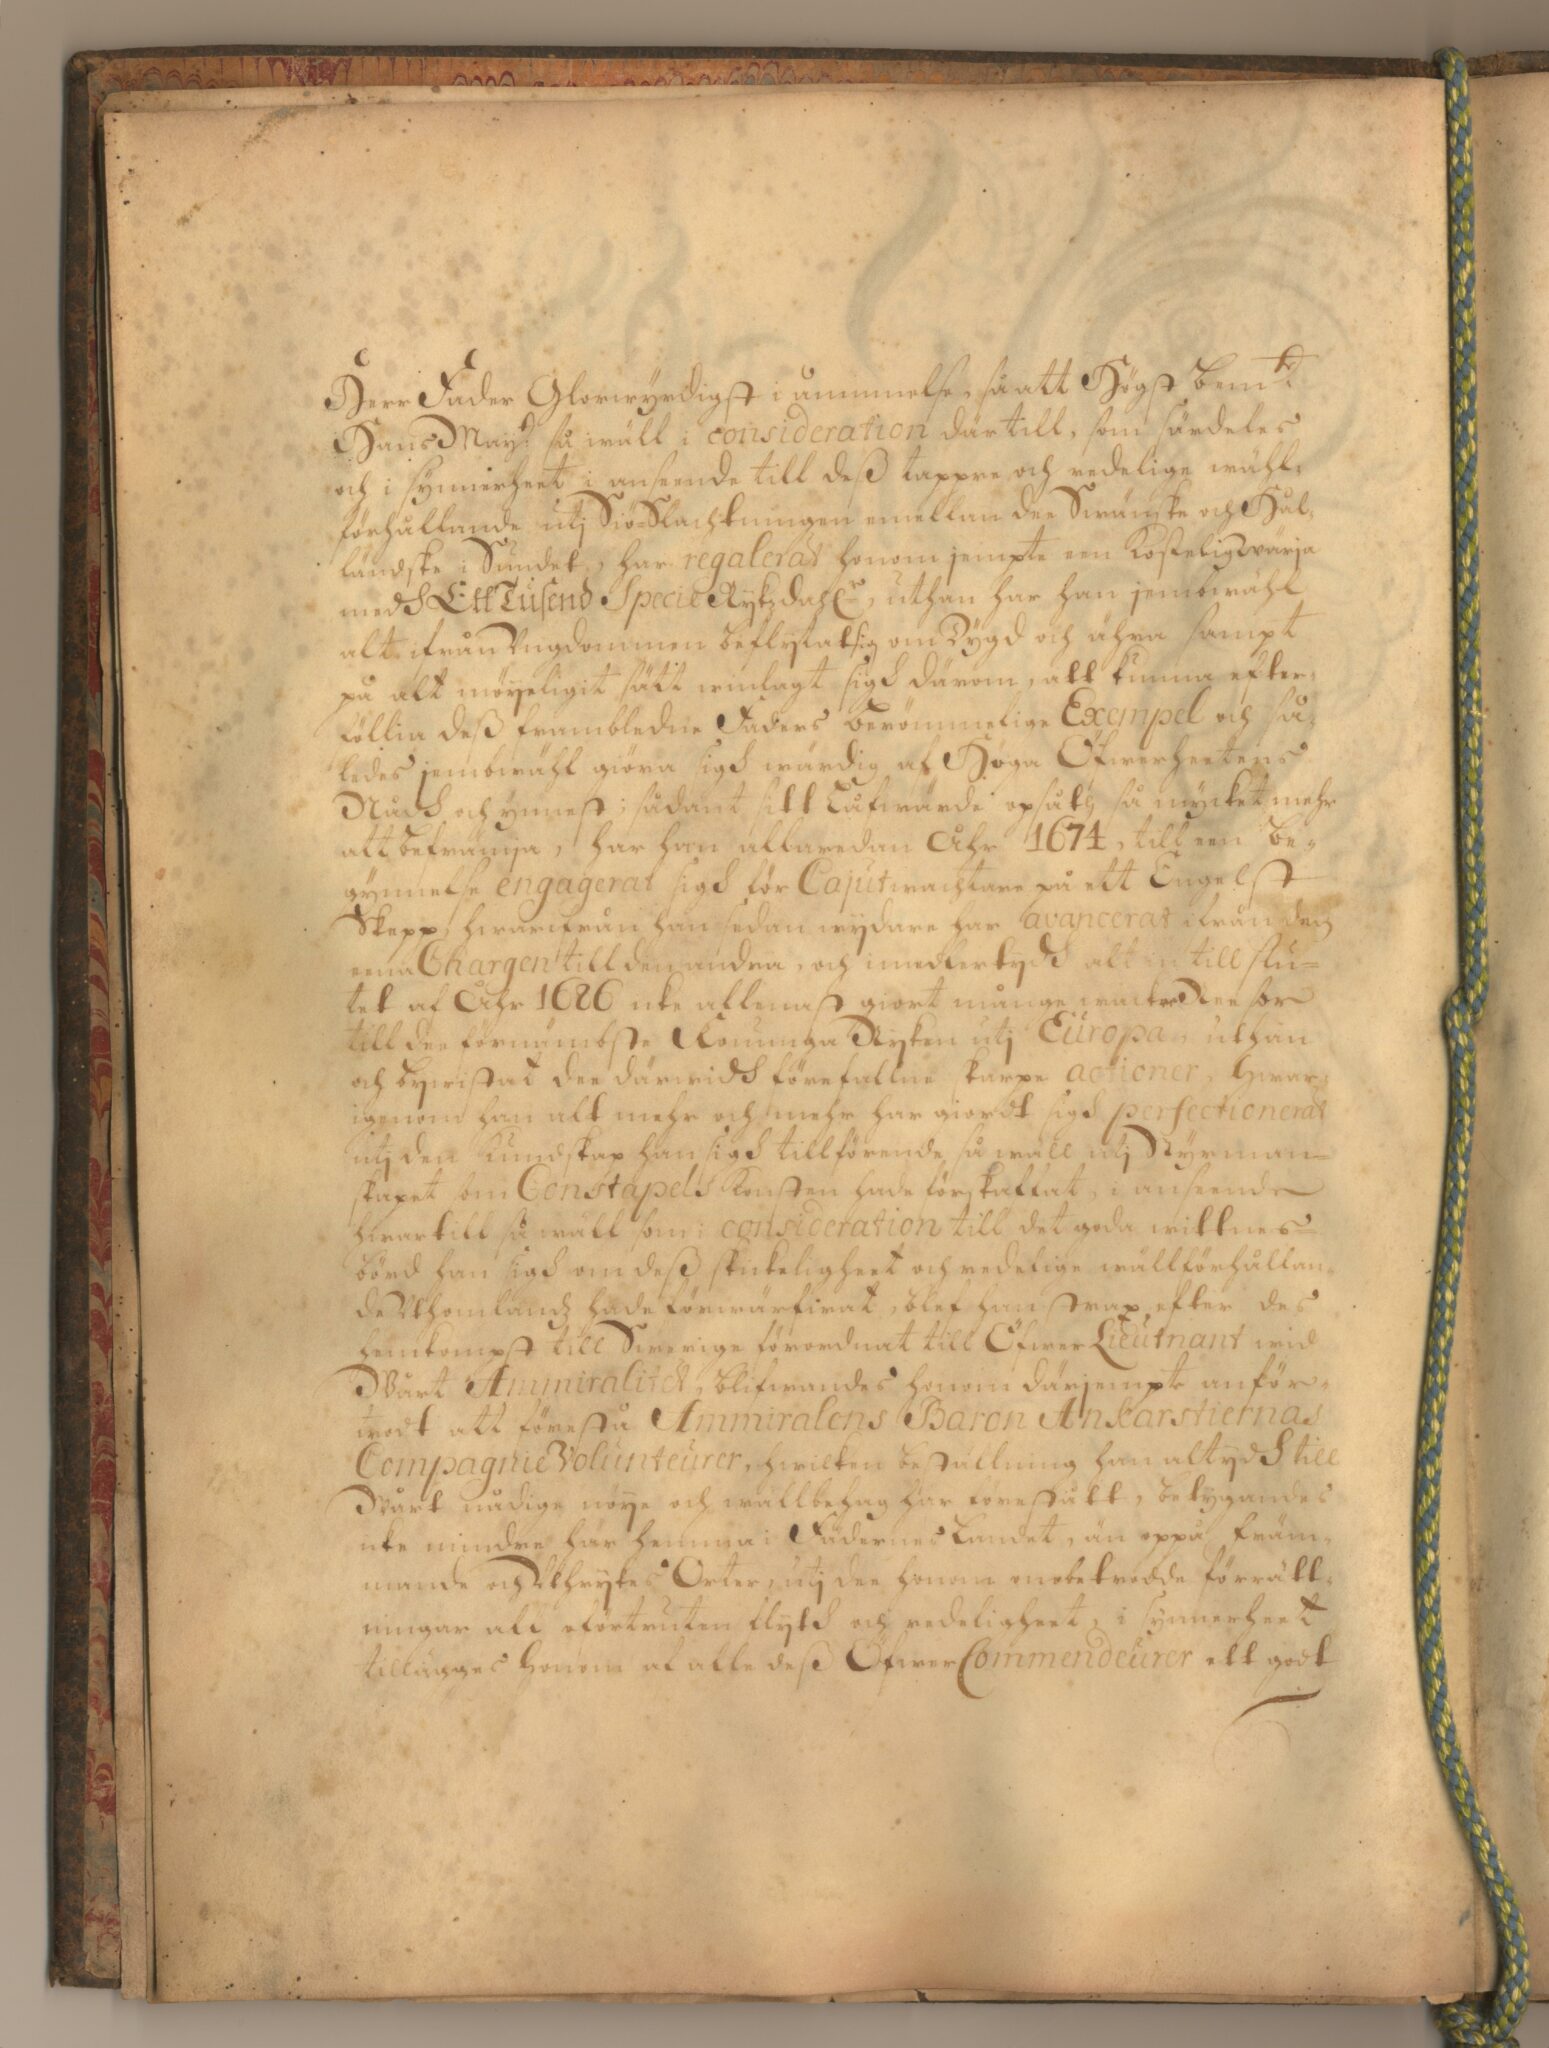 Herr Fader Glorwyrdigst i åminnelse, så att Högst bem:te
Hans May:t så wäll i consideration därtill, som särdeles
och i synnerheet i anseende till deß tappre och redelige wähl-
förhållande utj Siö-Slachtningen emellan dee Swänske och Hol-
ländske i Sundet, har regalerat honom jempte een Kostelig wärja
medh Ett Tusend Specie Rykzdahl:r, uthan har han jembwähl
alt ifrån Ungdommen beflytat sig om Dygd och ähra sampt
på alt möyeligit sätt winlagt sigh därom, att kunna efter-
föllia deß framledne Faders berömmelige Exempel och så-
ledes jembwähl giöra sigh wärdig af Höga Öfwerheetens
Nådh och ynnest; sådant sitt Låfwärde opsåtg så mycket mehr
att befrämja, har han allaredan Åhr 1674, till een be-
gynnelse engagerat sigh för Cajutwachtare på ett Engelst
Skepp, hwarifrån han sedan wydare har avancerat ifrån den
eena Chargen till den andra, och imedlertydh alt in till slu-
tet af Åhr 1686 icke allenast giort månge wackre Reesor
till dee förnämbste Konunga Ryken utj Europa, uthan
och bywistat dee därwidh förefallne skarpe actioner, hwar-
igenom han alt mehr och mehr har giordt sigh perfectionerat
utj den Kundskap han sigh tillförende så wäll utj Styrman-
skapet som Constapels Konsten hade förskaffat, i anseende
hwartill så wäll som i consideration till det goda wittnes-
börd han sigh om deß skickeligheet och redelige wällförhållan-
de Uthomlandz hade förwärfwat, blef han strax efter des
hemkompst till Swerige förordnat till Öfwer Lieutnant wid
Wårt Ammiralitet, blifwandes honom därjempte anför-
trodt att förestå Ammiralens Baron Ankarstiernas
Compagnie Volunteurer, hwilken beställning han altydh till
Wårt nådige nöye och wällbehag har förestått, betygandes
icke mindre här hemma i Fädernes Landet, än oppå främ-
mande och Uthrykes Orter, utj dee honom anbetrodde förrätt-
ningar all oförtruten flyth och redeligheet, i synnerheet
tillägges honom af alle deß Öfwer Commendeurer ett godt